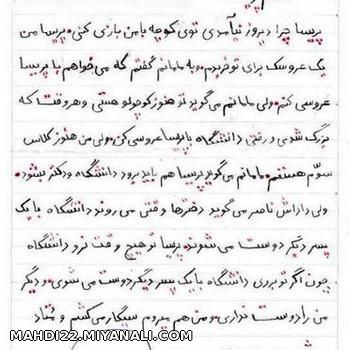 پریسا چرا دیروز نیآمدی توی کوچه با من بازی کنی. پریسا من
یک عروسک برای تو خریدم. و به مامانم گفتم که می خواهم با پریسا
عروسی کنم. ولی مامانم می گوید تو هنوز کوچولو هستی و هر وقت که
بزرگ شدی و رفتی دانشگاه با پریسا عروسی کن. ولی من هنوز کلاس
سوّم هستم. مامانم می گوید پریسا هم باید برود دانشگاه و دکتر بشود.
ولی داداش ناصر می گوید دخترها وقتی می روند دانشگاه با یک
پسر دیگر دوست می شوند. پریسا تو هیچ وقت نرو دانشگاه
چون اگر تو بروی دانشگاه با یک پسر دیگر دوست می شوی. و دیگر
من را دوست نداری. و من هم میروم سیگار می کشم و معتاد
MAHDI22.MIYANALI.COM